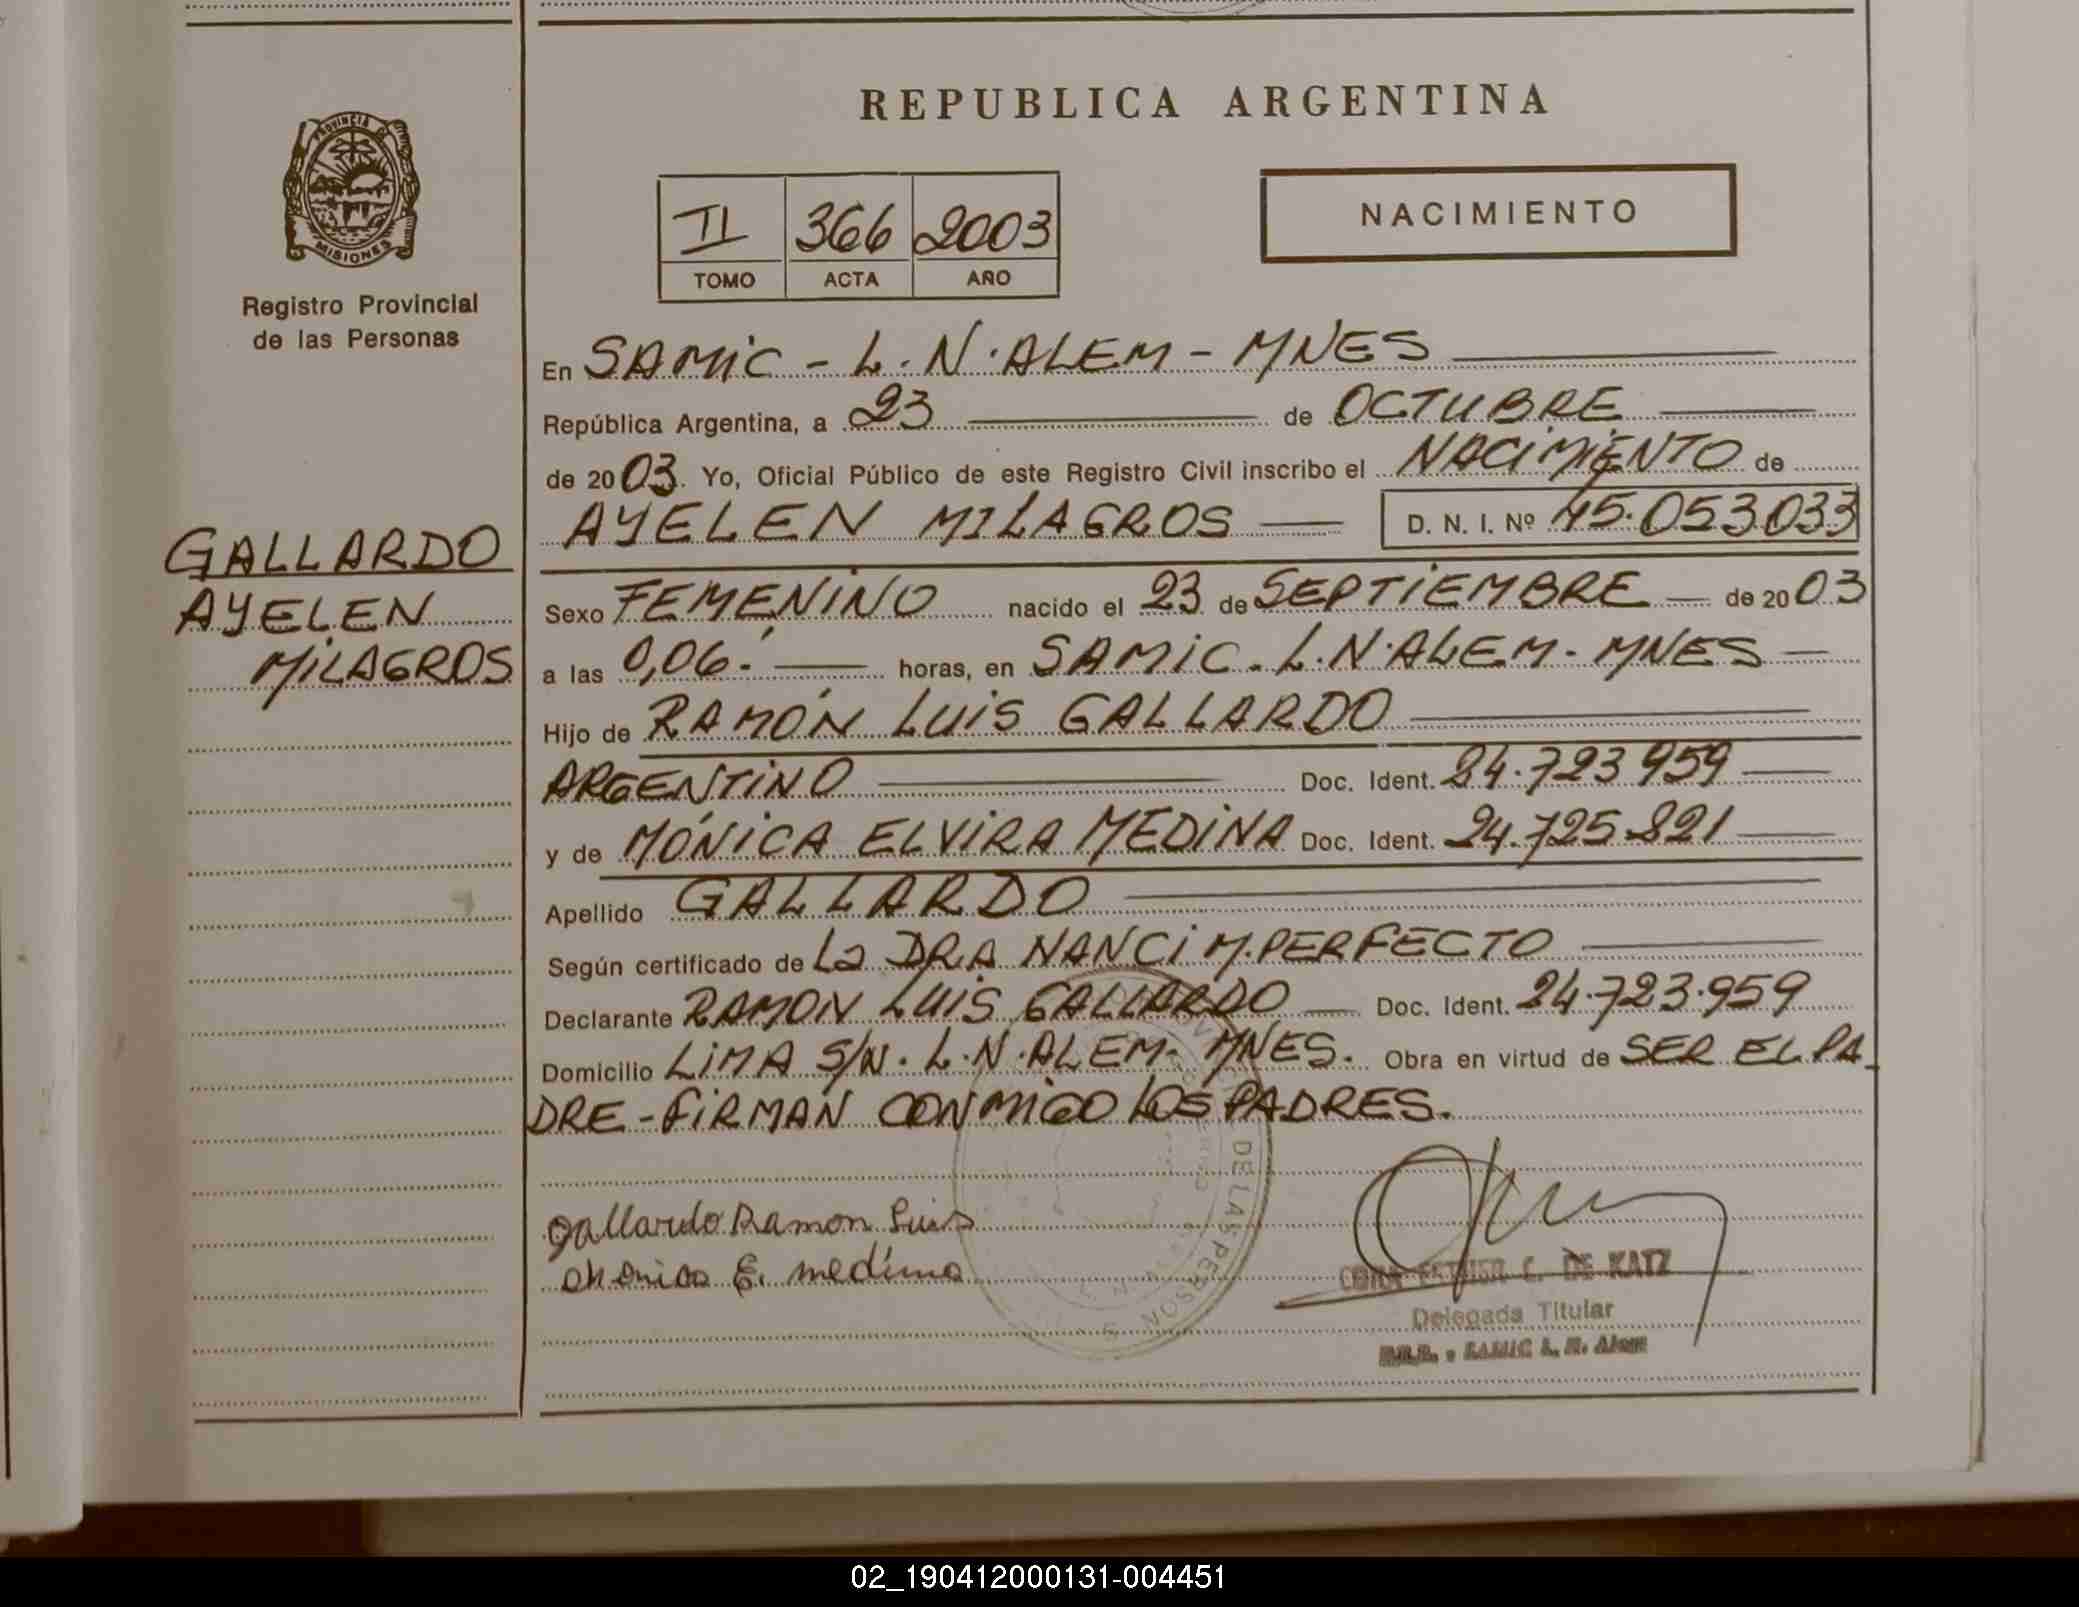 REPUBLICA ARGENTINA
PROVINCIA DE
MISIONES
Registro Provincial
de las Personas
II 366 2003
TOMO ACTA AÑO
NACIMIENTO
GALLARDO
AYELEN
MILAGROS
En SAMIC - L.N.ALEM - MNES
República Argentina, a 23 de OCTUBRE
de 2003. Yo, Oficial Público de este Registro Civil inscribo el NACIMIENTO de
AYELEN MILAGROS D. N. I. Nº 45.053.033
Sexo FEMENINO nacido el 23 de SEPTIEMBRE de 2003
a las 0,06. horas, en SAMIC. L.N.ALEM. MNES
Hijo de RAMÓN LUIS GALLARDO
ARGENTINO Doc. Ident. 24.723.959
y de MÓNICA ELVIRA MEDINA Doc. Ident. 24.725.821
Apellido GALLARDO
Según certificado de La DRA NANCI M. PERFECTO
Declarante RAMON LUIS GALLARDO Doc. Ident. 24.723.959
Domicilio LIMA S/N. L.N.ALEM- MNES. Obra en virtud de SER EL PA
DRE - FIRMAN CONMIGO LOS PADRES.
DE LAS PERSONAS
Gallardo Ramon Luis
Monica E. medina
C. DE KATZ
Delegada Titular
SAMIC L. N. Alem
02_190412000131-004451